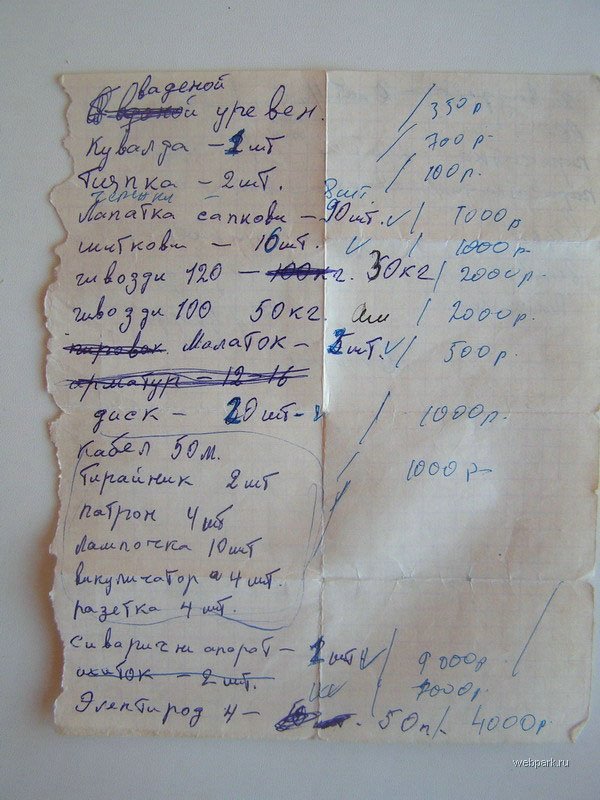 ваденой
уревен. / 350р
Кувалда - 2шт / 700р
Тияпка - 2шт. / 100р.
черенки 8шт.
Лапатка сапкови - 90шт. V / 1000р
шиткови - 16шт. V / 1000р
гивозди 120 - 100кг. 50кг / 2000р.
гивозди 100 50кг. / 2000р.
Малаток - 2шт. V / 500р.
арматур - 12-16
диск - 20шт - V / 1000р.
кабел 50м.
Тирайник 2шт / 1000р-
патрон 4шт /
лампочка 10шт
викуличатор 4шт.
разетка 4шт.
сиварични апорот - 2шт V / 9000р
- 2шт. VV / 1000р.
Электирод 4 - 50п / 4000р
webpark.ru